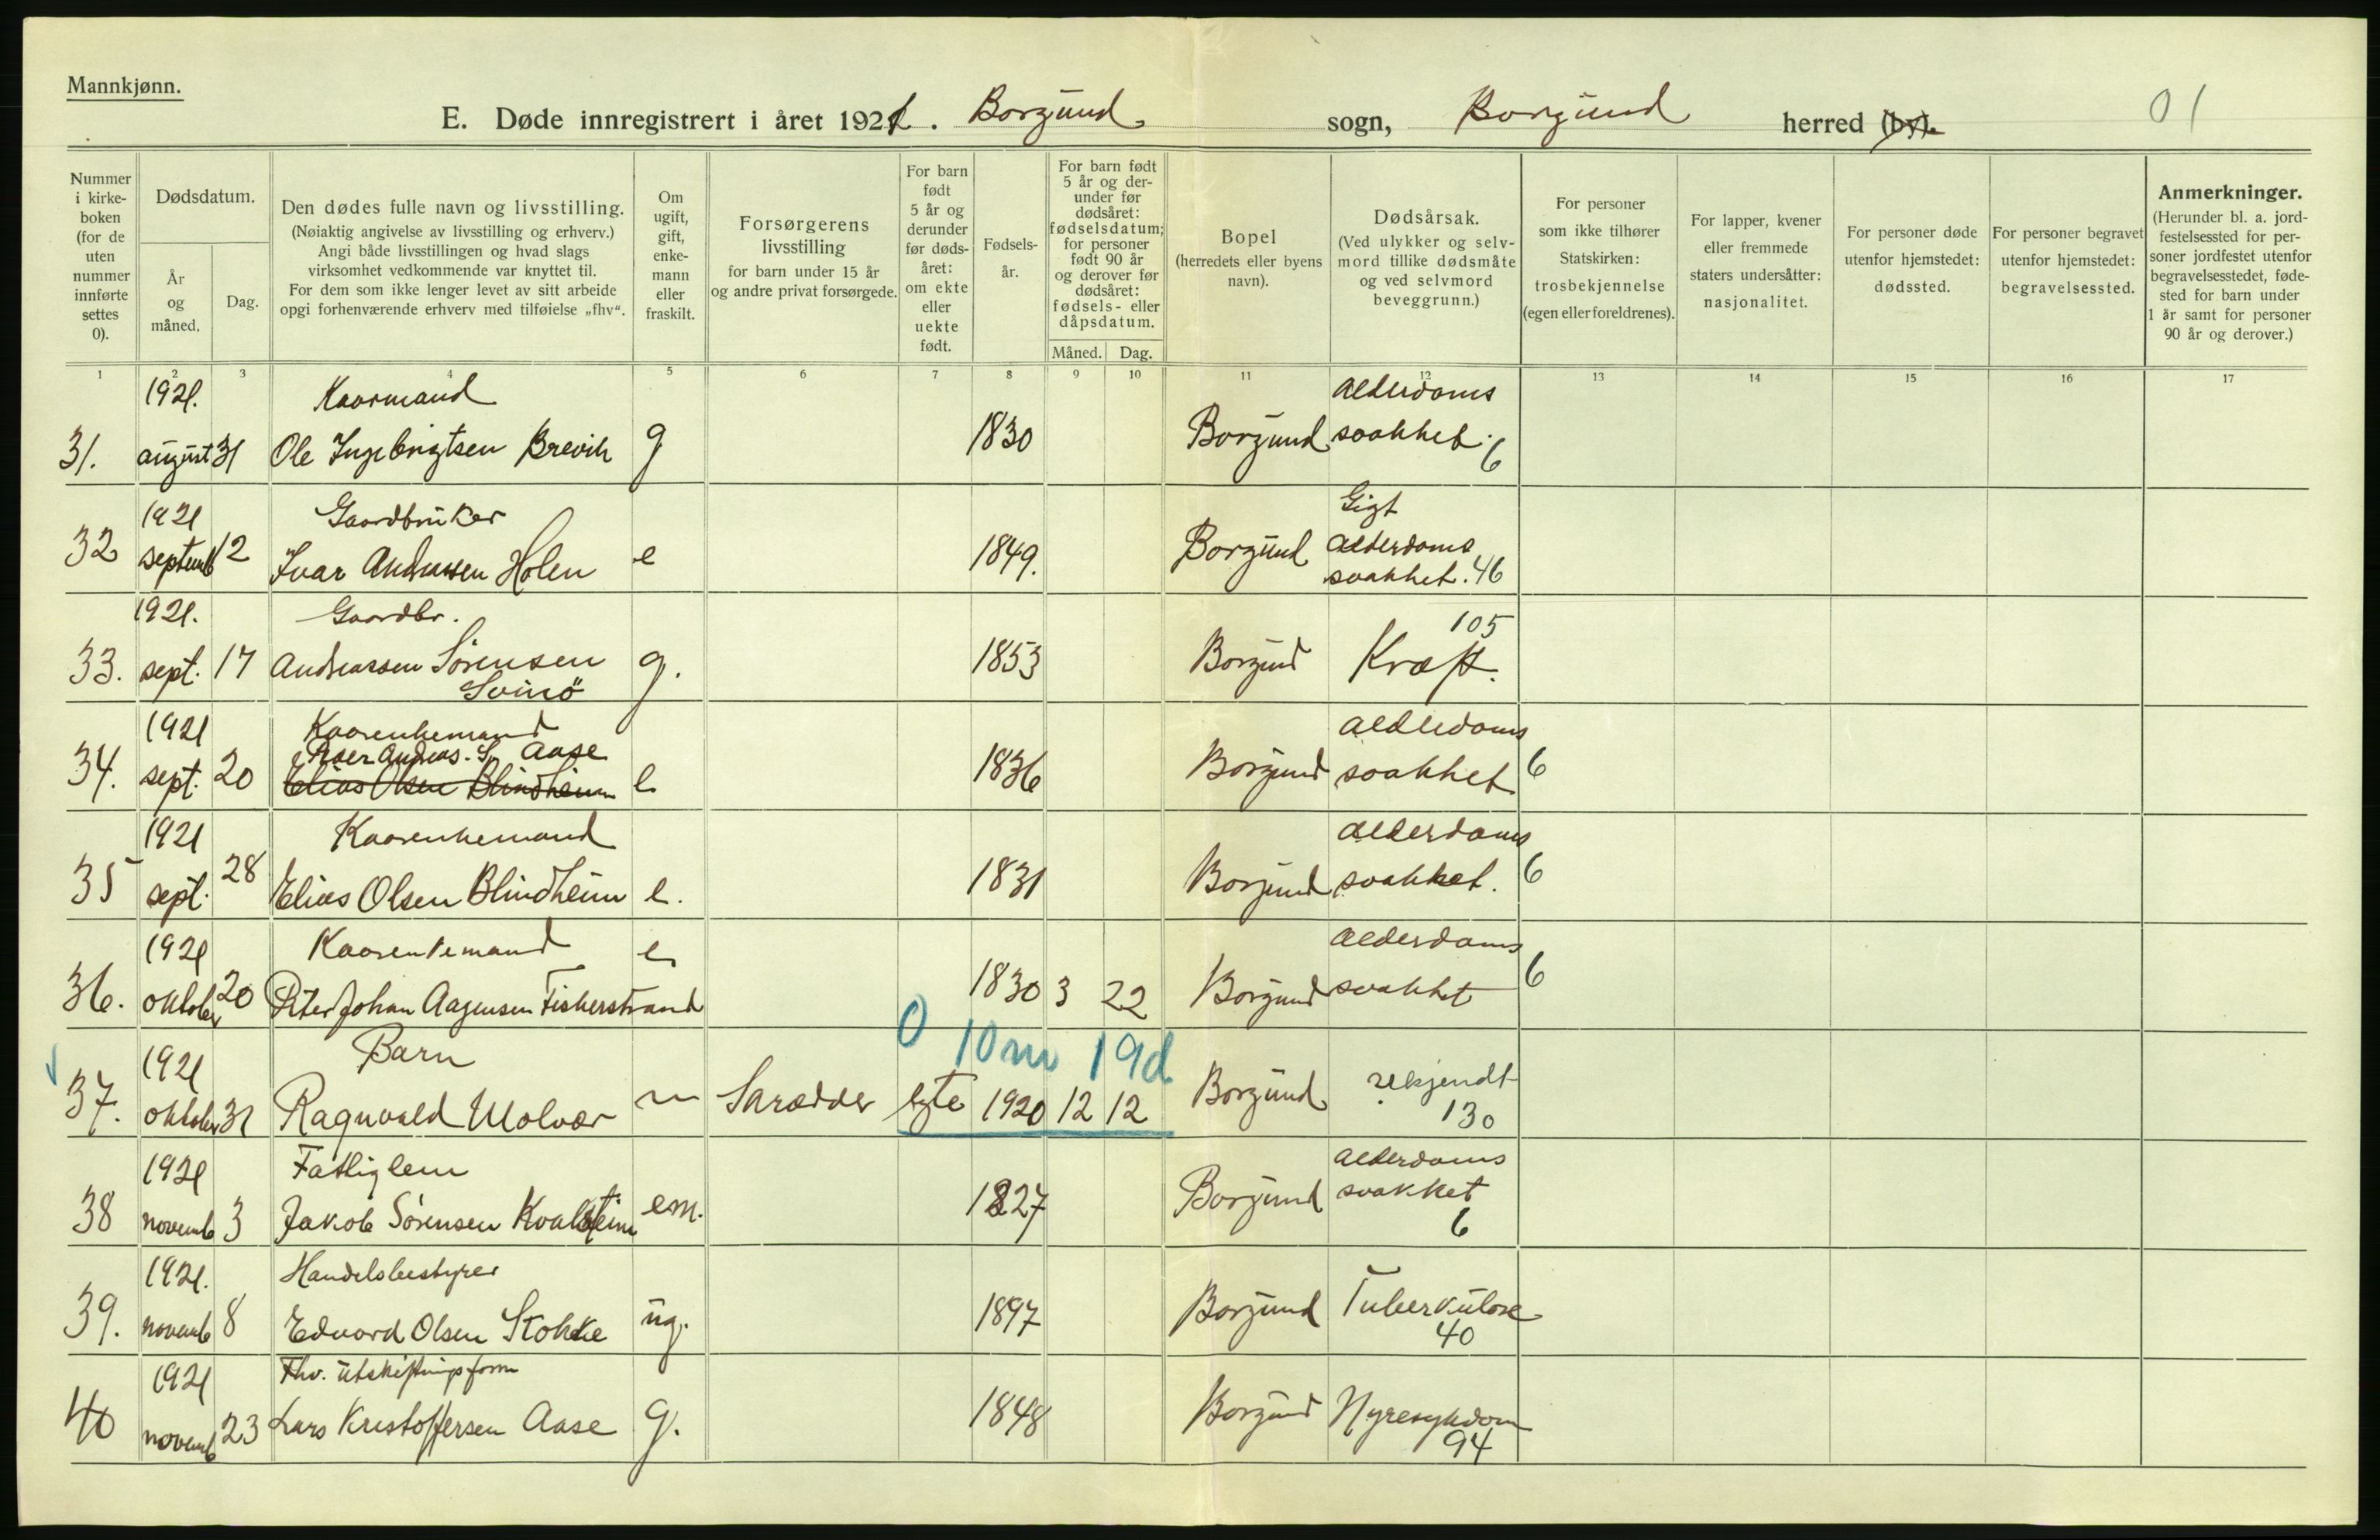 Mannkjønn.
E. Døde innregistrert i året 1921. Borgund sogn, Borgund herred (by).
01
Nummer i kirkeboken (for de uten nummer innførte settes 0).
Dødsdatum.
År og måned.
Dag.
Den dødes fulle navn og livsstilling.
(Nøiaktig angivelse av livsstilling og erhverv.)
Angi både livsstillingen og hvad slags
virksomhet vedkommende var knyttet til.
For dem som ikke lenger levet av sitt arbeide
opgi forhenværende erhverv med tilføielse „fhv“.
Om ugift, gift, enkemann eller fraskilt.
Forsørgerens livsstilling
for barn under 15 år
og andre privat forsørgede.
For barn født 5 år og derunder før dødsåret: om ekte eller uekte født.
Fødselsår.
For barn født 5 år og derunder før dødsåret: fødselsdatum; for personer født 90 år og derover før dødsåret: fødsels- eller dåpsdatum.
Måned. Dag.
Bopel
(herredets eller byens navn).
Dødsårsak.
(Ved ulykker og selvmord tillike dødsmåte og ved selvmord beveggrunn.)
For personer som ikke tilhører Statskirken: trosbekjennelse (egen eller foreldrenes).
For lapper, kvener eller fremmede staters undersåtter: nasjonalitet.
For personer døde utenfor hjemstedet: dødssted.
For personer begravet utenfor hjemstedet: begravelsessted.
Anmerkninger.
(Herunder bl. a. jordfestelsessted for personer jordfestet utenfor begravelsesstedet, fødested for barn under 1 år samt for personer 90 år og derover.)
1 2 3 4 5 6 7 8 9 10 11 12 13 14 15 16 17
1921. Kaarmand alderdoms
31. august 31 Ole Ingebrigtsen Brevik g 1830 Borgund svakhet. 6
1921 Gaardbruker Gigt
32 septemb 12 Ivar Andreassen Holen e 1849. Borgund alderdoms
svakhet. 46
1921. Gaardbr. 105
33. sept. 17 Andreassen Sørensen g. 1853 Borgund Kræft.
Svinö
1921 Kaarenkemand alderdoms
Peder Andreas. S. Aase
34. sept. 20 Elias Olsen Blindheim e 1836 Borgund svakhet 6
1921 Kaarenkemand alderdoms
35 sept. 28 Elias Olsen Blindheim e. 1831 Borgund svakhet. 6
1921 Kaarenkemand e alderdoms
36. oktober 20 Peter Johan Aagensen Fiskerstrand 1830 3 22 Borgund svakhet 6
0 10m 19d
1921 Barn
37. oktober 31 Ragnvald Molvær Skrædder egte 1920 12 12 Borgund ukjendt
130
1921 Fattiglem alderdoms
38 novemb 3 Jakob Sørensen Kvalsteim em. 1827 Borgund svakket
6
1921. Handelsbestyrer
39. novemb 8 Edvard Olsen Stokke ug. 1897 Borgund Tuberkulose
40
1921 Fhv. utskiftningsform
40 novemb 23 Lars Kristoffersen Aase g. 1848 Borgund Nyresykdom
94